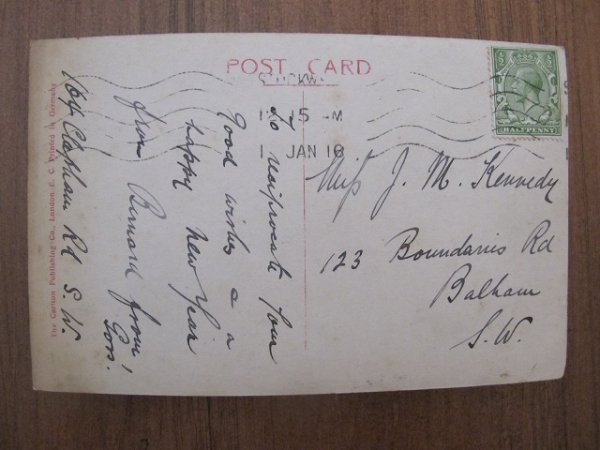 POST CARD
HALFPENNY
15 M
1 JAN 16
Miss J. M. Kennedy
123 Boundaries Rd
Balham
S.W.
To reciprocate your
Good wishes & a
happy New Year
from Bernard from
164 Clapham Rd S.W.
The Carlton Publishing Co., London E. C. Printed in Germany